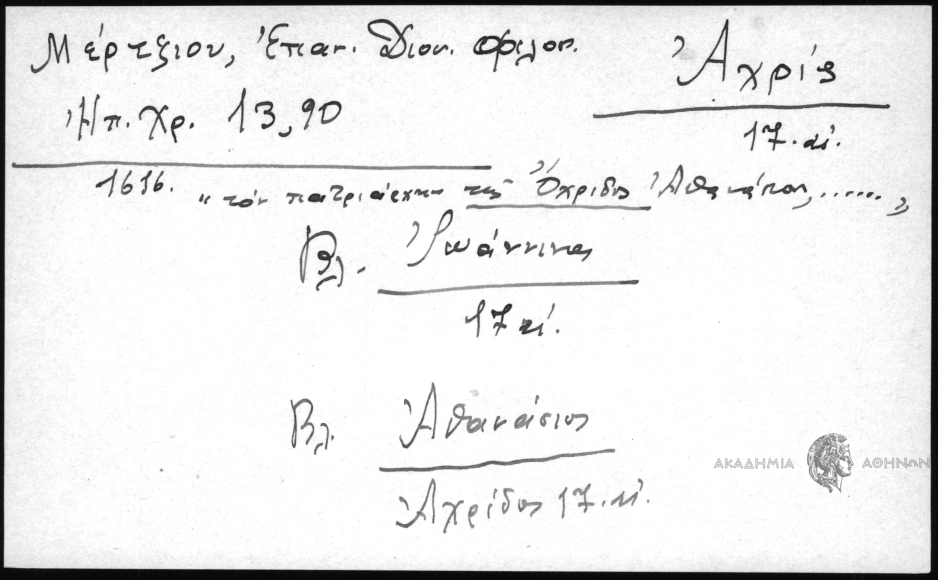 Μέρτζιου, Ἐπαν. Διον. Φιλοσ.
Ἀχρίς
Ἠπ. Χρ. 13, 90
17. αἰ.
1616. "τὸν πατριάρχην τῆς Ὀχρίδος Ἀθανάσιον, ......,
Βλ. Ἰωάννινα
17 αἰ.
Βλ. Ἀθανάσιος
Ἀχρίδος 17. αἰ.
ΑΚΑΔΗΜΙΑ ΑΘΗΝΩΝ